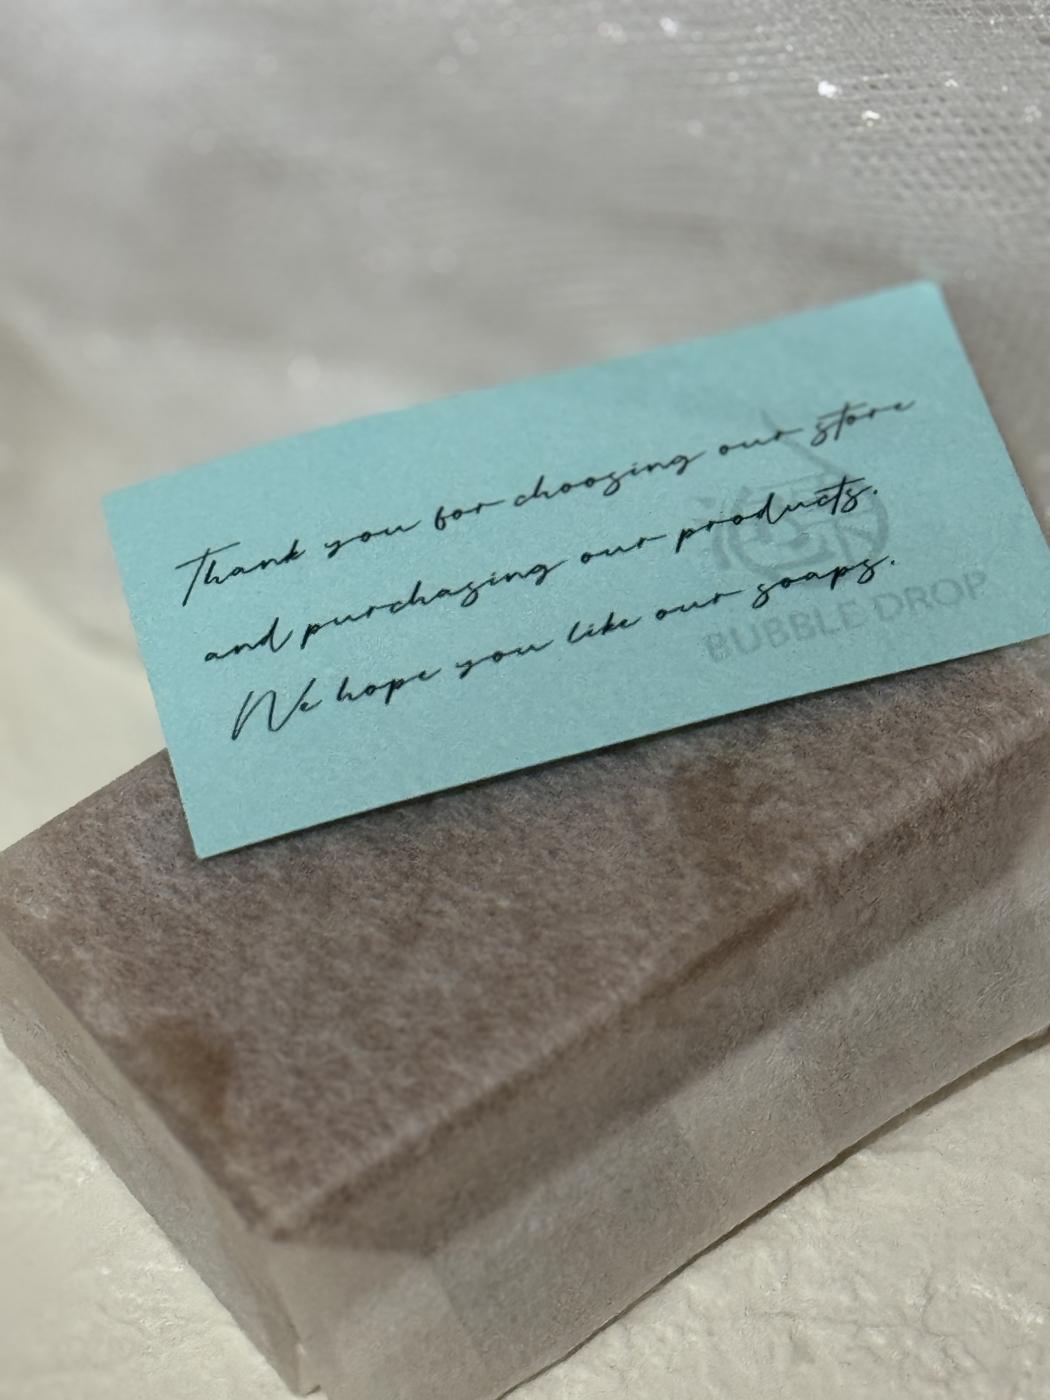 Thank you for choosing our store
and purchasing our products.
We hope you like our soaps.
BUBBLE DROP